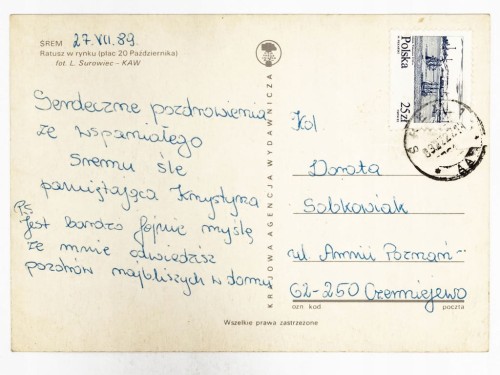 ŚREM 27.VII.89.
Ratusz w rynku (plac 20 Października)
fot. L. Surowiec – KAW
Serdeczne pozdrowienia
ze wspaniałego
Śremu śle
pamiętająca Krystyna
P.S.
Jest bardzo fajnie myślę
że mnie odwiedzisz
pozdrów najbliższych w domu
KRAJOWA AGENCJA WYDAWNICZA
Polska
25 zł
Kol
Dorota
Sobkowiak
ul Armii Poznań
62-250 Czerniejewo
ozn kod poczta
Wszelkie prawa zastrzeżone